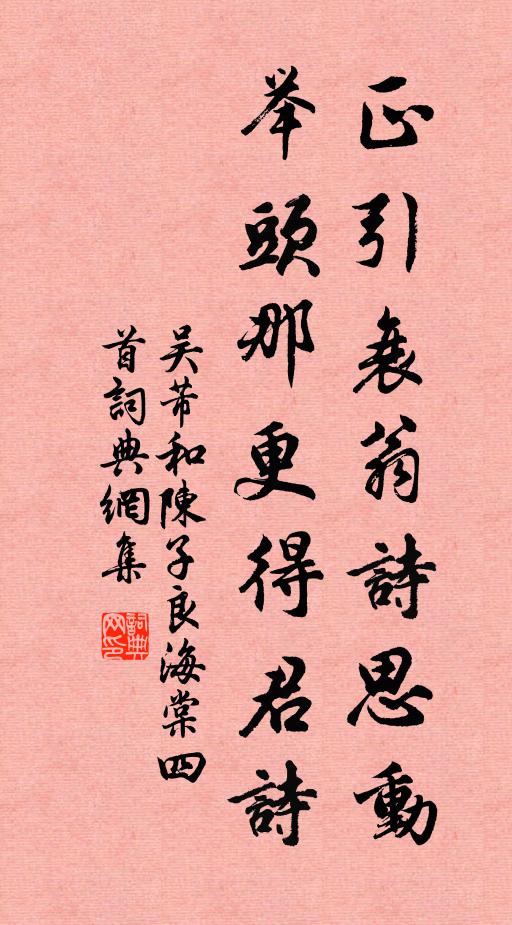 正引衰翁詩思動
举頭那更得君詩
吴芾和陳子良海棠四
首詞典網集
詞典网印